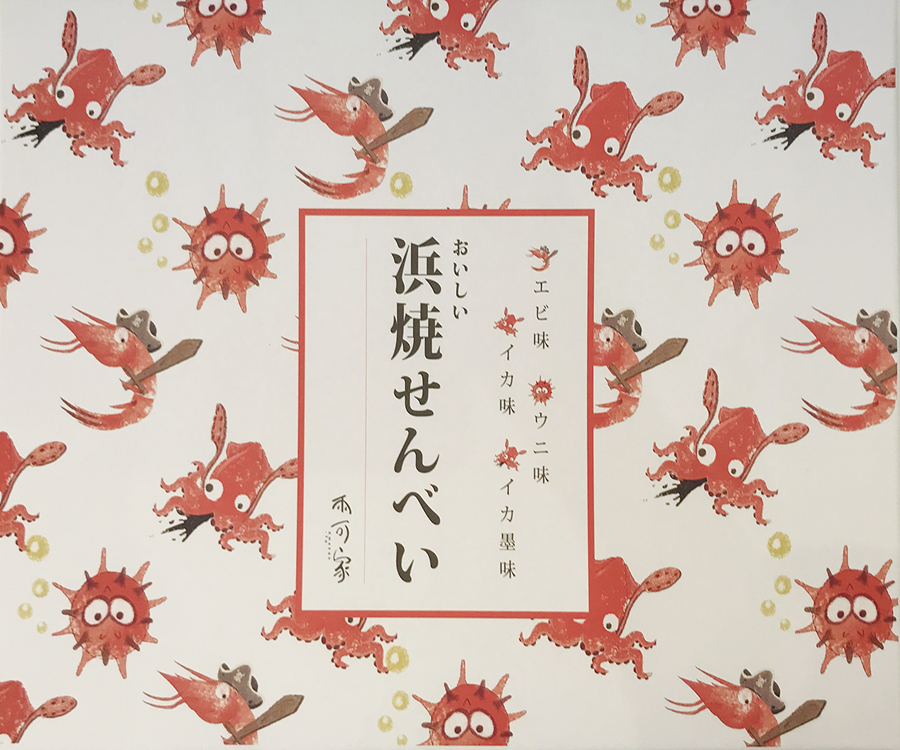 エビ味 ウニ味
イカ味 イカ墨味
おいしい
浜焼せんべい